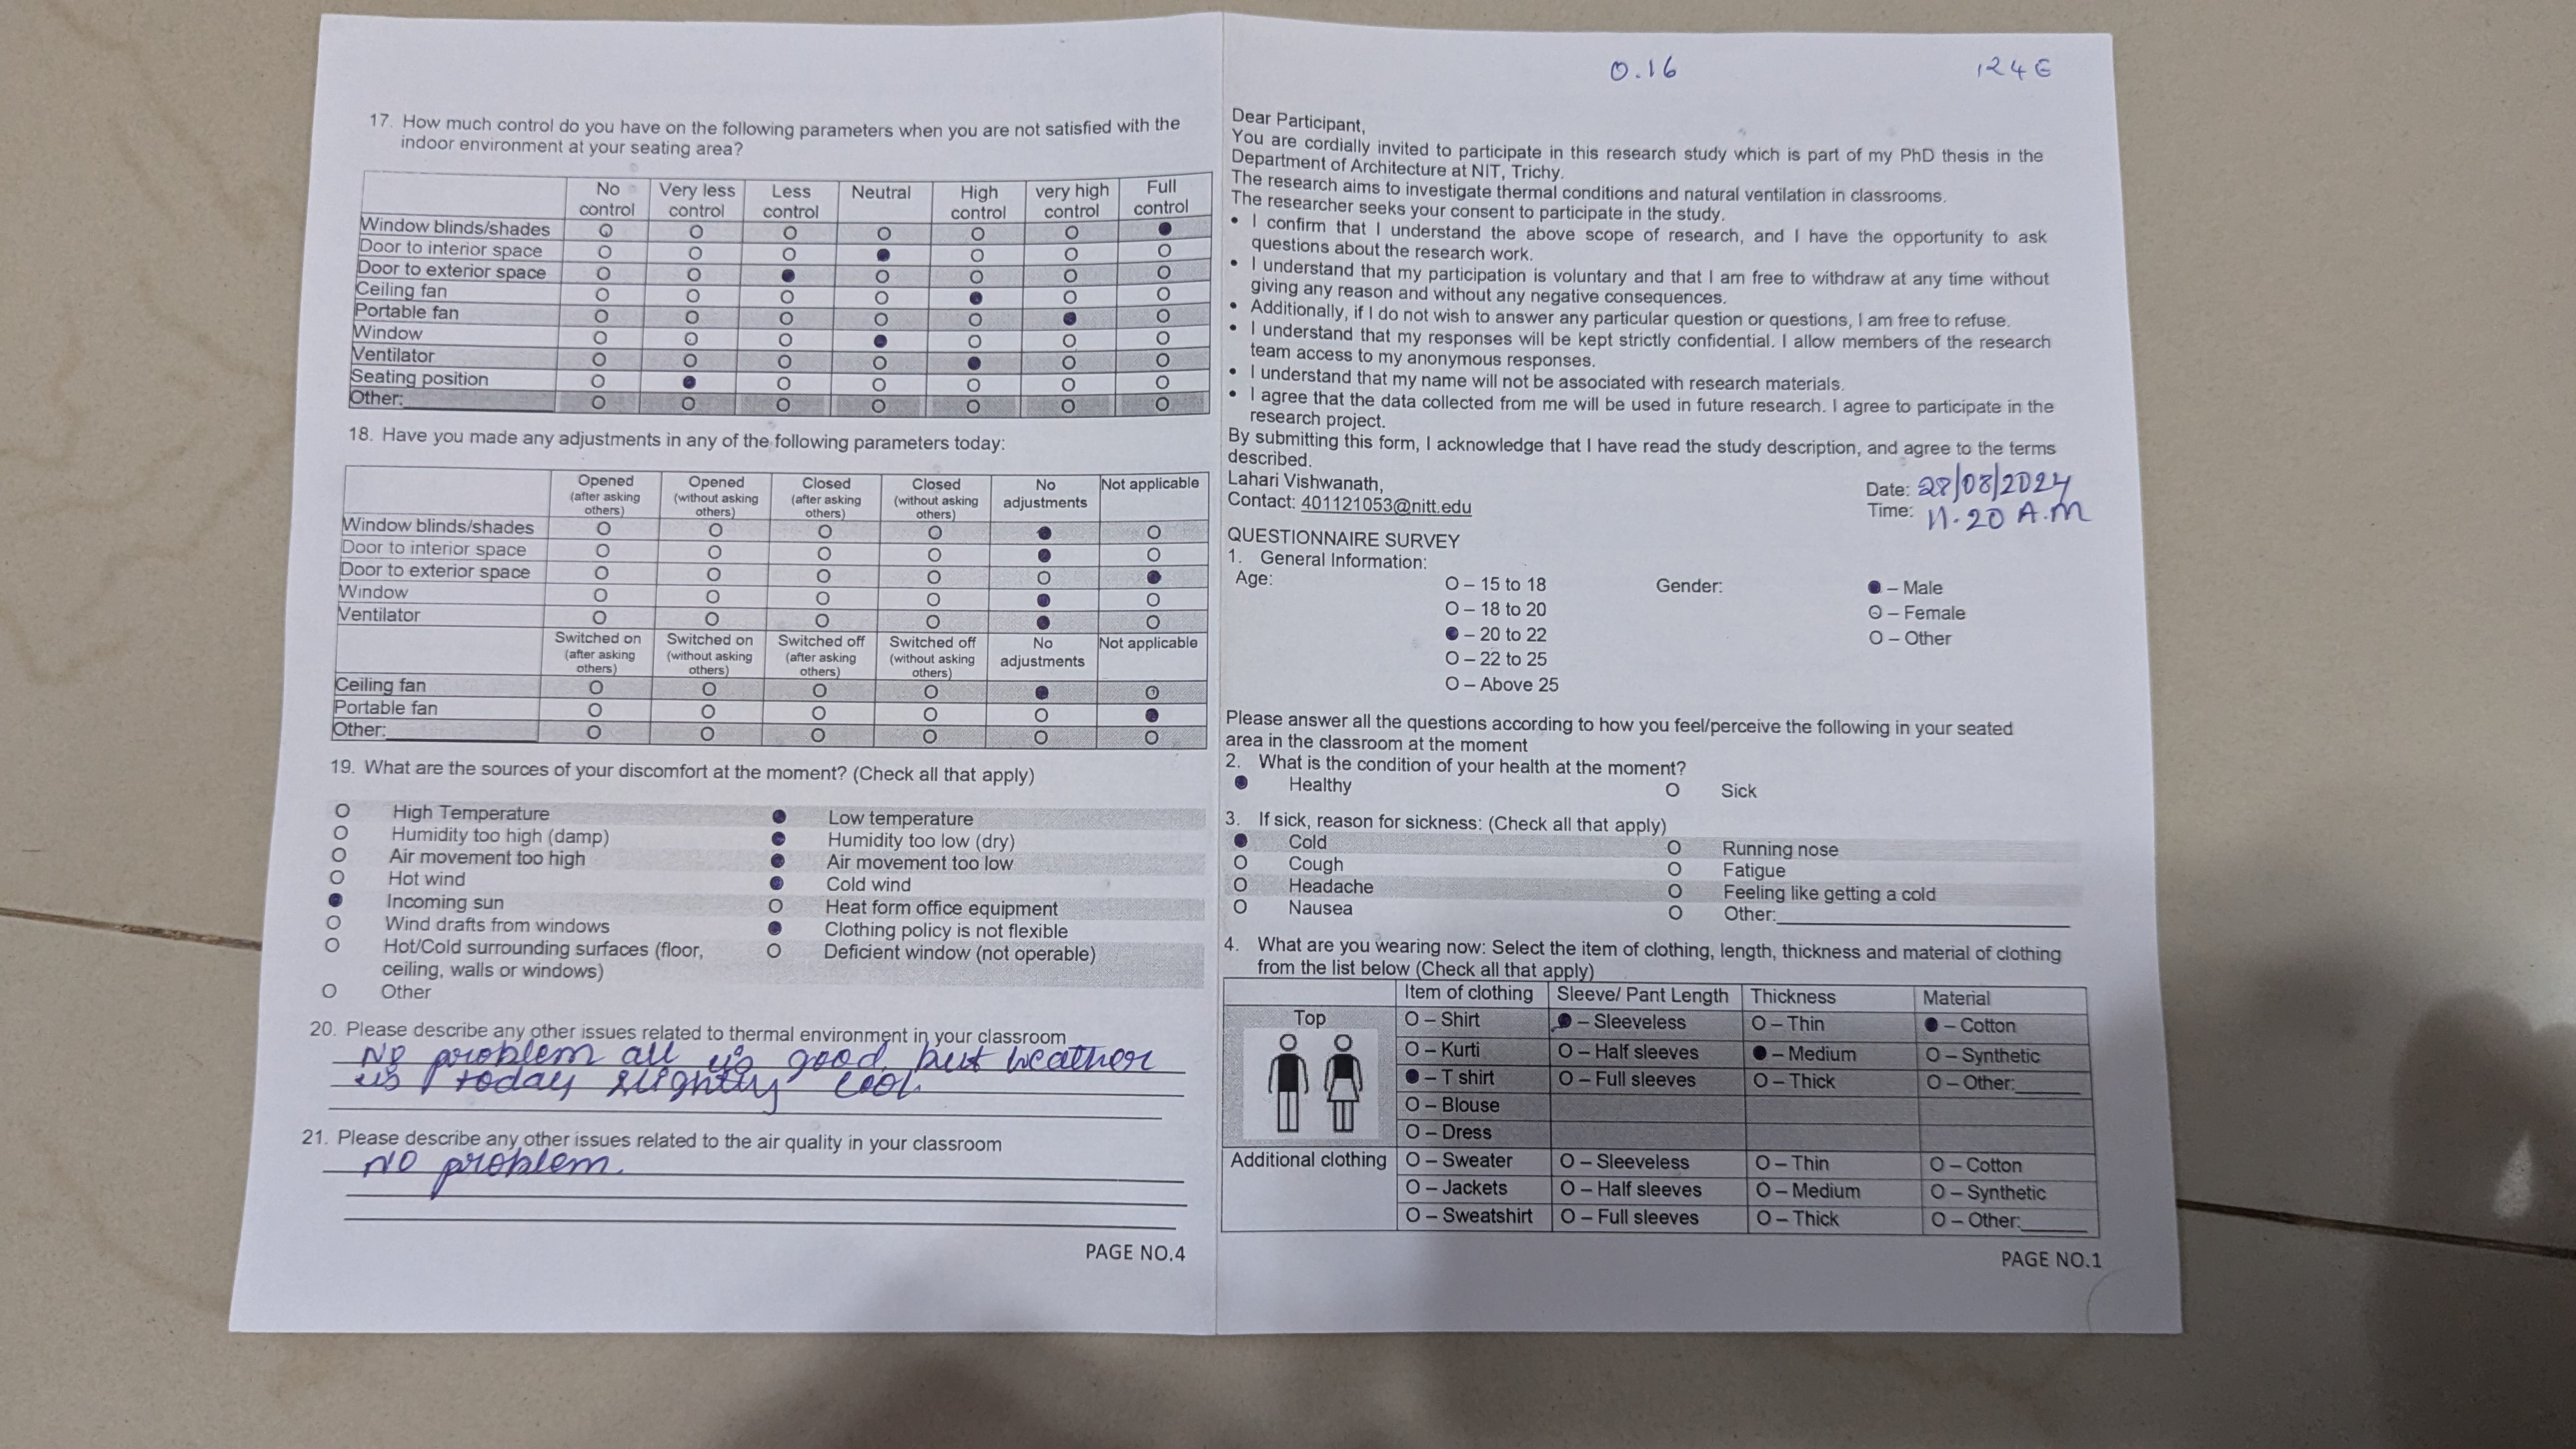 17. How much control do you have on the following parameters when you are not satisfied with the
indoor environment at your seating area?
No control Very less control Less control Neutral High control very high control Full control
Window blinds/shades O O O O O O ●
Door to interior space O O O ● O O O
Door to exterior space O O ● O O O O
Ceiling fan O O O O ● O O
Portable fan O O O O O ● O
Window O O O ● O O O
Ventilator O O O O ● O O
Seating position O ● O O O O O
Other:__________ O O O O O O O
18. Have you made any adjustments in any of the following parameters today:
Opened (after asking others) Opened (without asking others) Closed (after asking others) Closed (without asking others) No adjustments Not applicable
Window blinds/shades O O O O ● O
Door to interior space O O O O ● O
Door to exterior space O O O O O ●
Window O O O O ● O
Ventilator O O O O ● O
Switched on (after asking others) Switched on (without asking others) Switched off (after asking others) Switched off (without asking others) No adjustments Not applicable
Ceiling fan O O O O ● O
Portable fan O O O O O ●
Other:__________ O O O O O O
19. What are the sources of your discomfort at the moment? (Check all that apply)
O High Temperature ● Low temperature
O Humidity too high (damp) ● Humidity too low (dry)
O Air movement too high ● Air movement too low
O Hot wind ● Cold wind
● Incoming sun O Heat form office equipment
O Wind drafts from windows ● Clothing policy is not flexible
O Hot/Cold surrounding surfaces (floor, O Deficient window (not operable)
ceiling, walls or windows)
O Other
20. Please describe any other issues related to thermal environment in your classroom
No problem all is good, but weather
is today slightly cool
21. Please describe any other issues related to the air quality in your classroom
NO problem
PAGE NO.4
0.16 124E
Dear Participant,
You are cordially invited to participate in this research study which is part of my PhD thesis in the
Department of Architecture at NIT, Trichy.
The research aims to investigate thermal conditions and natural ventilation in classrooms.
The researcher seeks your consent to participate in the study.
• I confirm that I understand the above scope of research, and I have the opportunity to ask
questions about the research work.
• I understand that my participation is voluntary and that I am free to withdraw at any time without
giving any reason and without any negative consequences.
• Additionally, if I do not wish to answer any particular question or questions, I am free to refuse.
• I understand that my responses will be kept strictly confidential. I allow members of the research
team access to my anonymous responses.
• I understand that my name will not be associated with research materials.
• I agree that the data collected from me will be used in future research. I agree to participate in the
research project.
By submitting this form, I acknowledge that I have read the study description, and agree to the terms
described.
Lahari Vishwanath,
Contact: 401121053@nitt.edu
Date: 28/08/2024
Time: 11.20 A.M
QUESTIONNAIRE SURVEY
1. General Information:
Age: O – 15 to 18 Gender: ● – Male
O – 18 to 20 O – Female
● – 20 to 22 O – Other
O – 22 to 25
O – Above 25
Please answer all the questions according to how you feel/perceive the following in your seated
area in the classroom at the moment
2. What is the condition of your health at the moment?
● Healthy O Sick
3. If sick, reason for sickness: (Check all that apply)
● Cold O Running nose
O Cough O Fatigue
O Headache O Feeling like getting a cold
O Nausea O Other:__________
4. What are you wearing now: Select the item of clothing, length, thickness and material of clothing
from the list below (Check all that apply)
Item of clothing Sleeve/ Pant Length Thickness Material
Top O – Shirt ● – Sleeveless O – Thin ● – Cotton
O – Kurti O – Half sleeves ● – Medium O – Synthetic
● – T shirt O – Full sleeves O – Thick O – Other:______
O – Blouse
O – Dress
Additional clothing O – Sweater O – Sleeveless O – Thin O – Cotton
O – Jackets O – Half sleeves O – Medium O – Synthetic
O – Sweatshirt O – Full sleeves O – Thick O – Other:______
PAGE NO.1